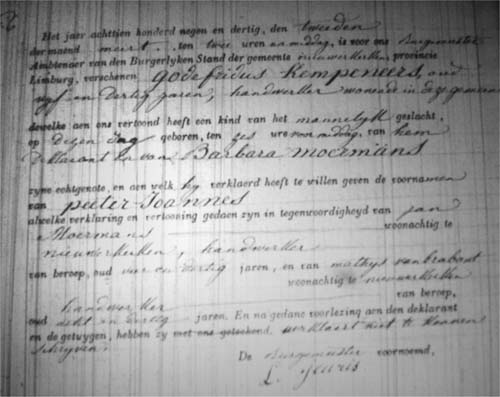 Het jaer achttien honderd negen en dertig, den tweeden
der maend meert, ten twee uren namiddag, is voor ons Burgemeester
Ambtenaer van den Burgerlyken Stand der gemeente nieuwerkerken, provincie
Limburg, verschenen godefridus Kempeneers, oud
vyf en dertig jaren, handwerker wonende in deze gemeente
dewelke aen ons vertoond heeft een kind van het mannelyk geslacht,
op dezen dag geboren, ten zes ure voormiddag, van hem
Deklarant en van Barbara moermans
zyne echtgenote, en aen welk hy verklaerd heeft te willen geven de voornamen
van peeter-Joannes
alwelke verklaring en vertooning gedaen zyn in tegenwoordigheyd van jan
Moermans woonachtig te
nieuwerkerken, handwerker
van beroep, oud vier en dertig jaren, en van mathys van brabant
woonachtig te nieuwerkerken
handwerker van beroep,
oud acht en dertig jaren. En na gedane voorlezing aen den deklarant
en de getuygen, hebben zy met ons geteekend. verklaert niet te konnen
schryven.
De Burgemeester voornoemd,
L. Jeuris